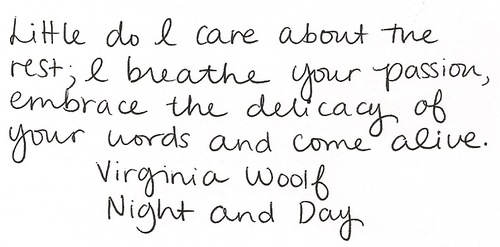 Little do I care about the
rest; I breathe your passion,
embrace the delicacy of
your words and come alive.
Virginia Woolf
Night and Day